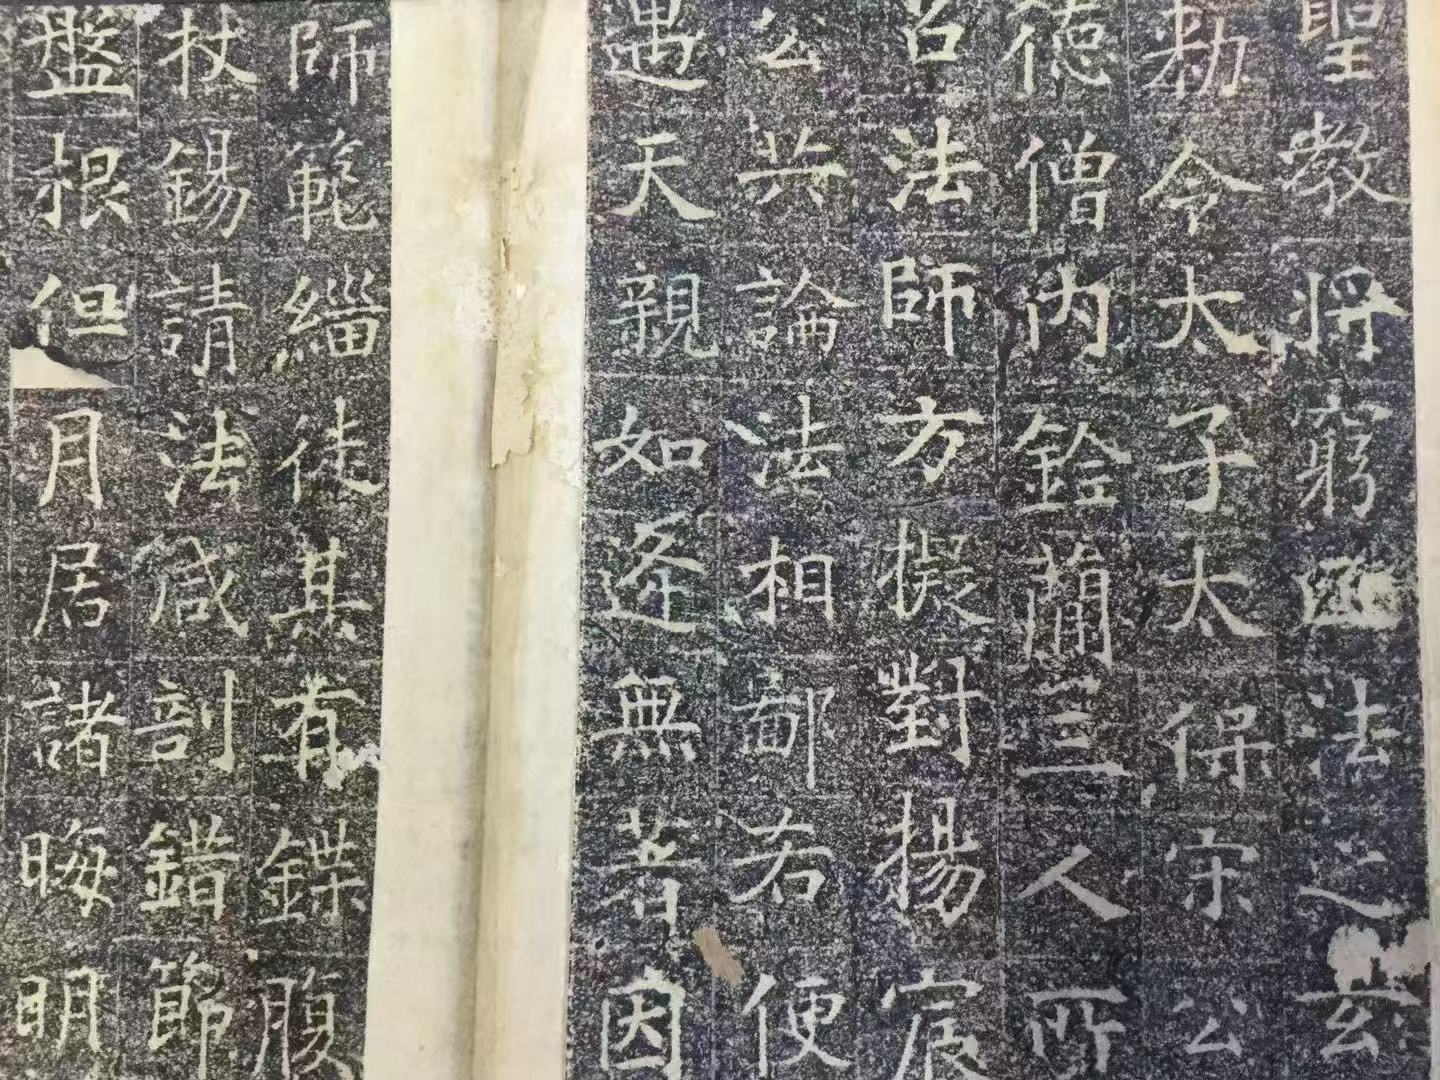 聖教將窮幽法之玄
勑令太子太保宋公
德僧内銓蘭三人所
召法師方擬對揚宸
公共論法相鄙吝便
遇天親如逢無著因
師範緇徒其有鍱腹
杖錫請法咸剖錯節
盤根但月居諸晦明